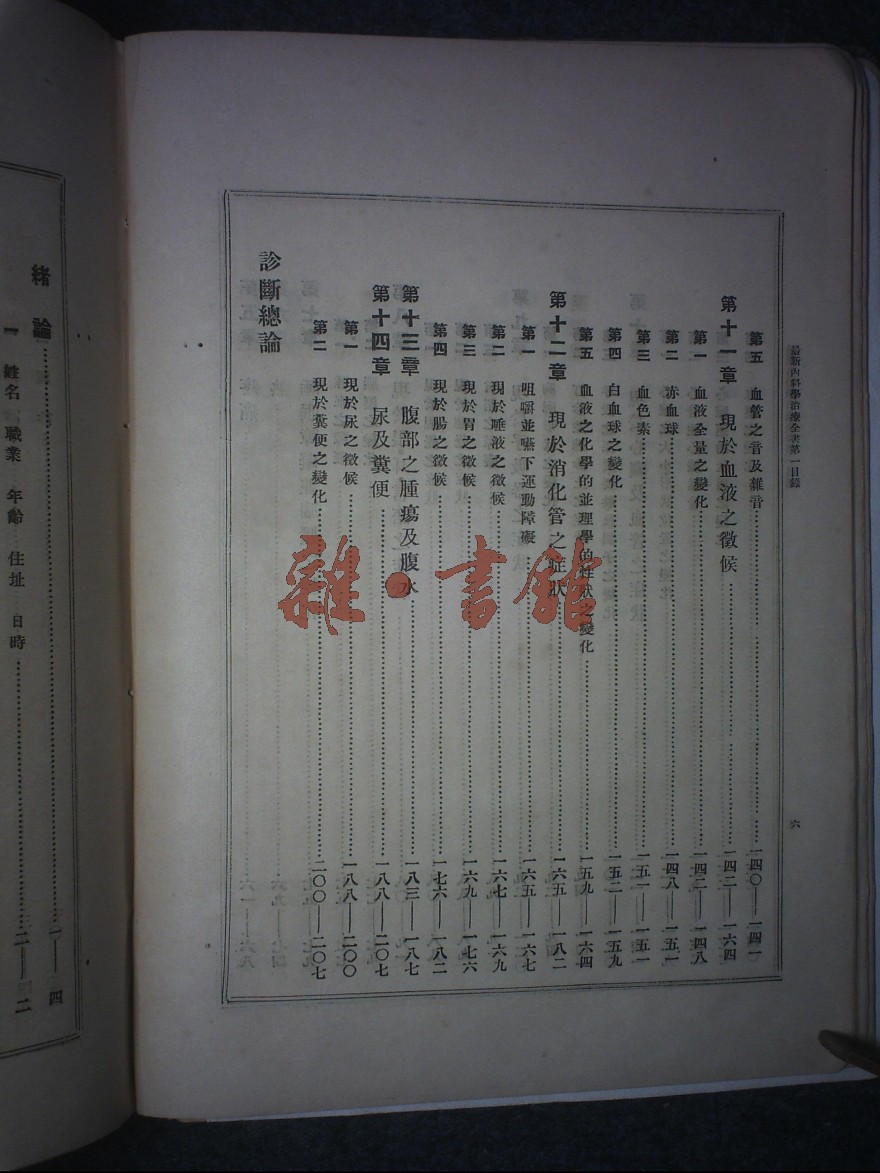 最新內科學治療全書第一目錄
六
第五 血管之音及雜音……一四〇——一四一
第十一章 現於血液之徵候……一四二——一六四
第一 血液全量之變化……一四二——一四八
第二 赤血球……一四八——一五一
第三 血色素……一五一——一五一
第四 白血球之變化……一五二——一五九
第五 血液之化學的並理學的性狀之變化……一五九——一六四
第十二章 現於消化管之症狀……一六五——一八二
第一 咀嚼並嚥下運動障礙……一六五——一六七
第二 現於唾液之徵候……一六七——一六九
第三 現於胃之徵候……一六九——一七六
第四 現於腸之徵候……一七六——一八二
第十三章 腹部之腫瘍及腹水……一八三——一八七
第十四章 尿及糞便……一八八——二〇七
第一 現於尿之徵候……一八八——二〇〇
第二 現於糞便之變化……二〇〇——二〇七
診斷總論
緒論……一——四
一 姓名 職業 年齡 住址 日時……二——二
雜·書館